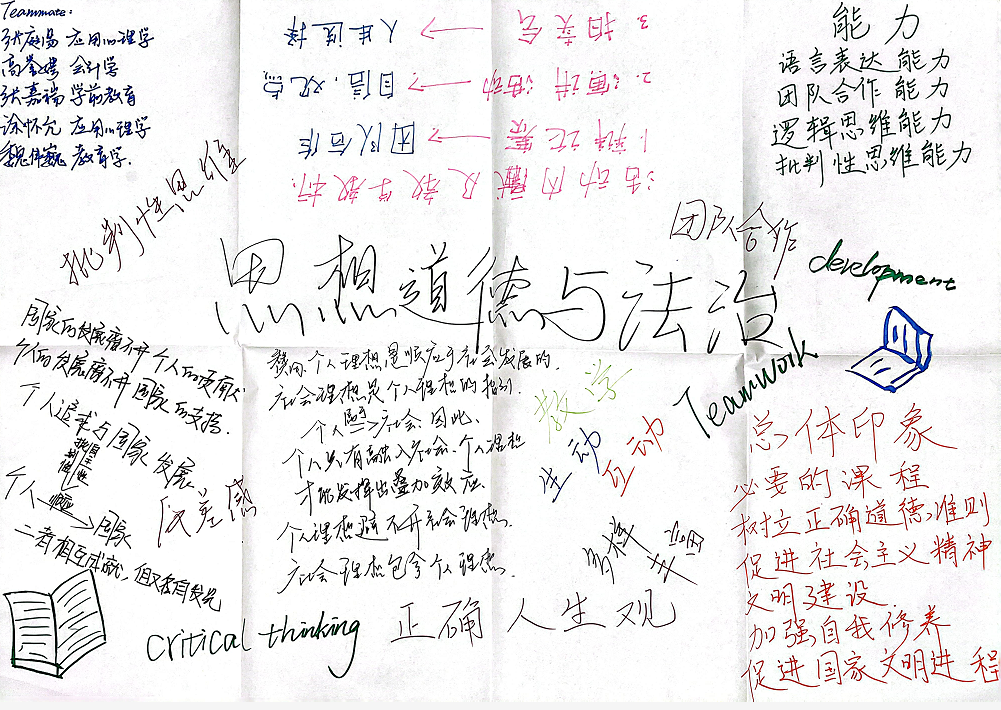 Teammate:
应用心理学
会计学
张嘉瑞 学前教育
涂怀允 应用心理学
教育学.
批判性思维
活动内容及教学教材.
1. 辩论赛 → 团队合作
2. 演讲活动 → 自信、观点
3. 相关会 → 人生选择
能力
语言表达能力
团队合作能力
逻辑思维能力
批判性思维能力
团队合作
development
思想道德与法治
国家的发展离不开个人的贡献
个人的发展离不开国家的支持.
个人追求与国家发展
反差感
个人 → 国家
二者相互成就,
个人理想是顺应于社会发展的.
社会理想是个人理想的指引.
个人 → 社会. 因此,
个人只有融入社会,个人理想
才能发挥出叠加效应.
个人理想离不开社会理想.
社会理想包含个人理想.
教学
生动
互动
多样
Teamwork
总体印象
必要的课程
树立正确道德准则
促进社会主义精神
文明建设.
加强自我修养
促进国家文明进程
critical thinking
正确人生观